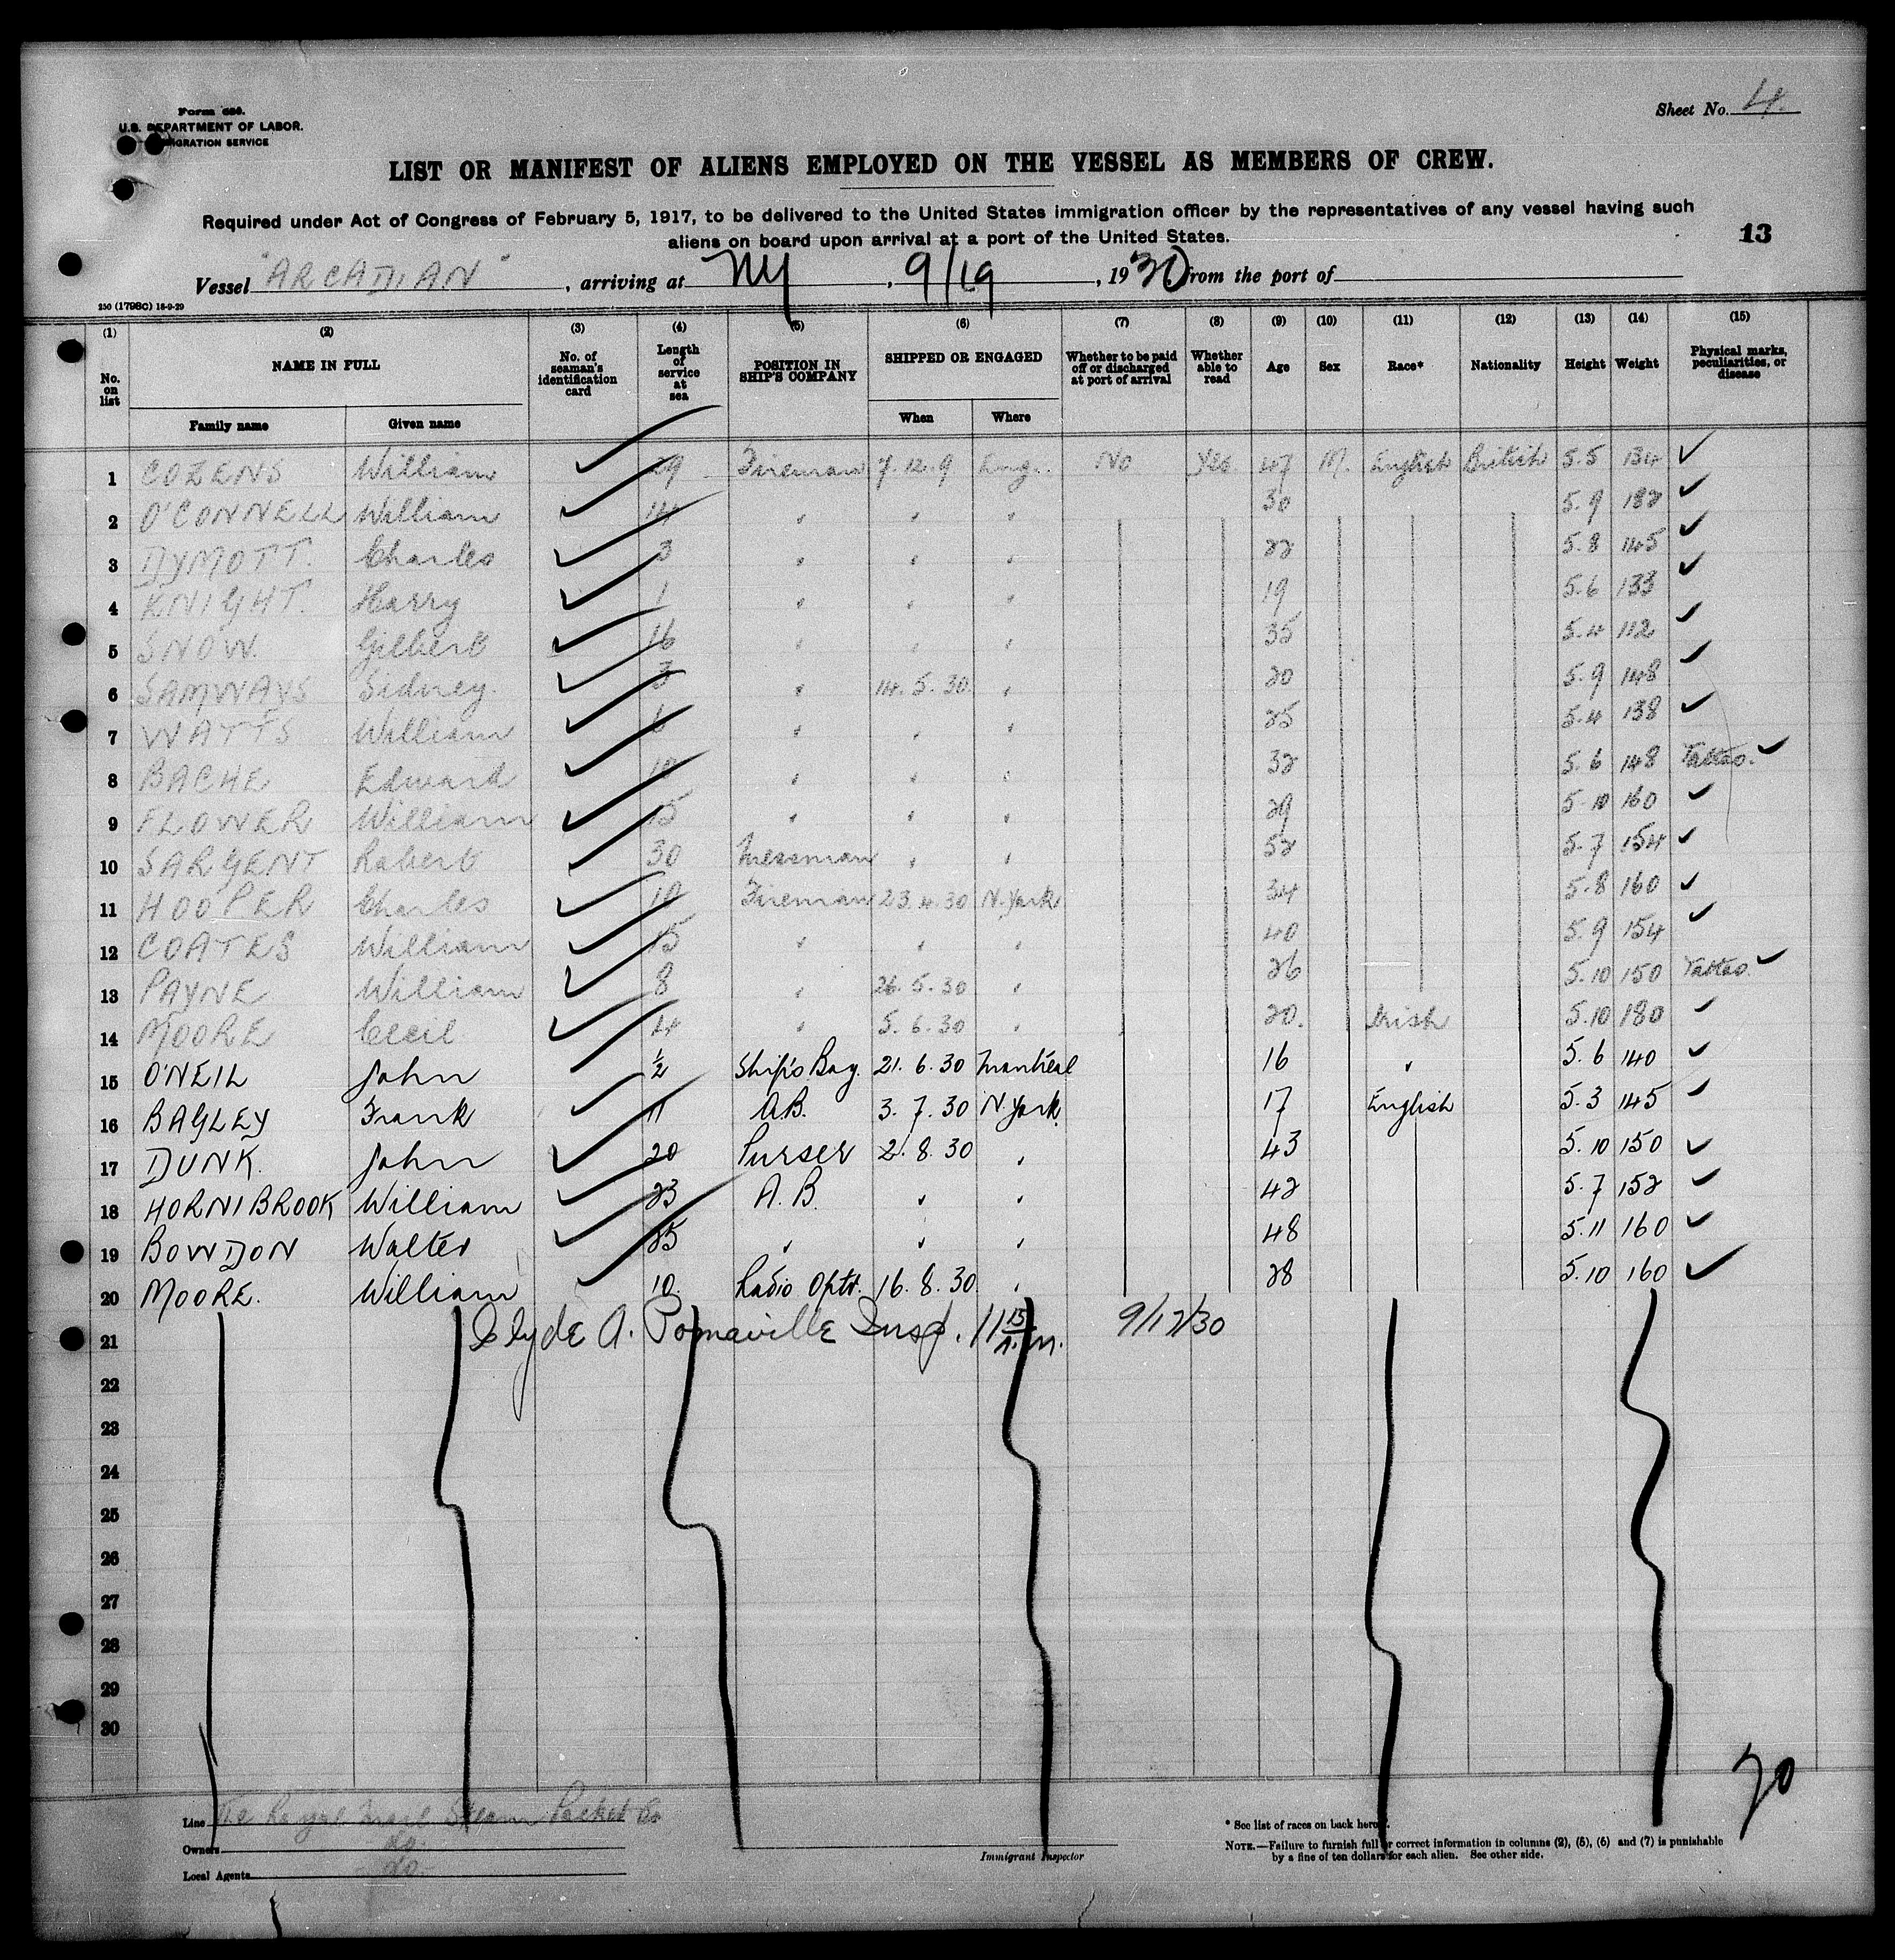 Form 680.
U.S. DEPARTMENT OF LABOR.
IMMIGRATION SERVICE
Sheet No. 4.
LIST OR MANIFEST OF ALIENS EMPLOYED ON THE VESSEL AS MEMBERS OF CREW.
Required under Act of Congress of February 5, 1917, to be delivered to the United States immigration officer by the representatives of any vessel having such
aliens on board upon arrival at a port of the United States.
13
Vessel "ARCADIAN", arriving at NY, 9/19, 1930, from the port of
250 (1798C) 18-9-29
(1) (2) (3) (4) (5) (6) (7) (8) (9) (10) (11) (12) (13) (14) (15)
No. on list NAME IN FULL No. of seaman's identification card Length of service at sea POSITION IN SHIP'S COMPANY SHIPPED OR ENGAGED Whether to be paid off or discharged at port of arrival Whether able to read Age Sex Race* Nationality Height Weight Physical marks, peculiarities, or disease
Family name Given name When Where
1 COZENS William ✓ 29 Fireman 7.12.9 Eng. No Yes. 47 M. English British 5.5 134 ✓
2 O'CONNELL William ✓ 14 " " " 30 5.9 182 ✓
3 DYMOTT. Charles ✓ 3 " " " 22 5.8 145 ✓
4 KNIGHT. Harry ✓ 1 " " " 19 5.6 133 ✓
5 SNOW. Gilbert ✓ 16 " " " 35 5.4 112 ✓
6 SAMWAYS Sidney. ✓ 3 " 14.5.30. " 20 5.9 148 ✓
7 WATTS William ✓ 6 " " " 25 5.4 138 ✓
8 BACHE Edward ✓ 10 " " " 32 5.6 148 Tattoo. ✓
9 FLOWER William ✓ 15 " " " 29 5.10 160 ✓
10 SARGENT Robert ✓ 30 Messman " " 52 5.7 154 ✓
11 HOOPER Charles ✓ 10 Fireman 23.4.30 N. York 34 5.8 160 ✓
12 COATES William ✓ 15 " " " 40 5.9 154 ✓
13 PAYNE William ✓ 8 " 26.5.30 " 26 5.10 150 Tattoo. ✓
14 MOORE Cecil ✓ 4 " 5.6.30 " 20. Irish 5.10 180 ✓
15 O'NEIL John ✓ ½ Ship's Boy. 21.6.30 Montreal 16 " 5.6 140 ✓
16 BAGLEY Frank ✓ 11 A.B. 3.7.30 N. York. 17 English 5.3 145 ✓
17 DUNK. John ✓ 20 Purser 2.8.30 " 43 5.10 150 ✓
18 HORNIBROOK William ✓ 23 A.B. " " 42 5.7 152 ✓
19 BOWDON Walter ✓ 25 " " " 48 5.11 160 ✓
20 MOORE. William ✓ 10. Radio Optr. 16.8.30. " 28 5.10 160 ✓
21 Clyde A. Pomaville Insp. 11 15 A.M. 9/19/30
22
23
24
25
26
27
28
29
30
20
Line The Royal Mail Steam Packet Co
Owners do.
Local Agents do.
Immigrant Inspector
* See list of races on back hereof.
NOTE.—Failure to furnish full or correct information in columns (2), (5), (6) and (7) is punishable
by a fine of ten dollars for each alien. See other side.